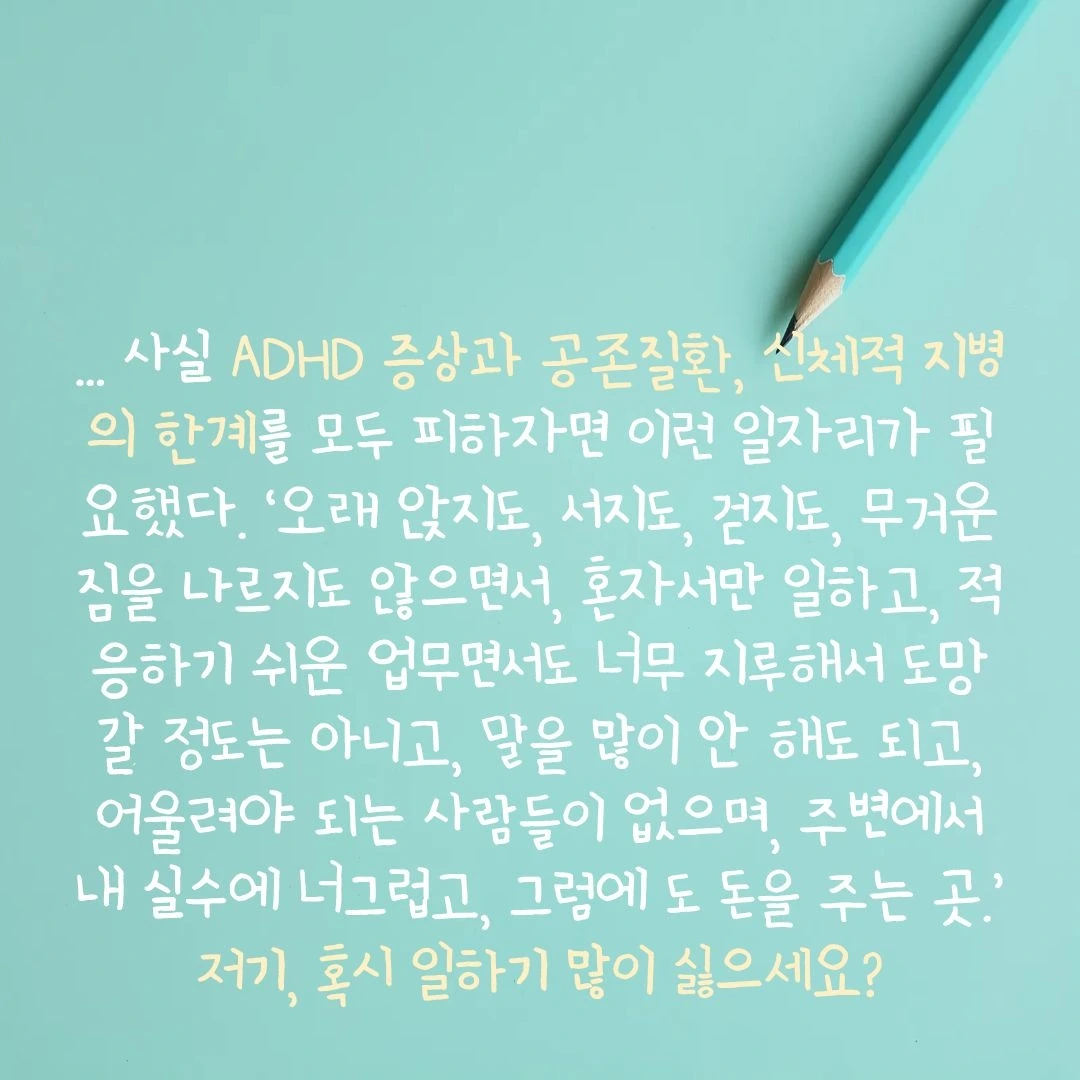 ... 사실 ADHD 증상과 공존질환, 신체적 지병
의 한계를 모두 피하자면 이런 일자리가 필
요했다. ‘오래 앉지도, 서지도, 걷지도, 무거운
짐을 나르지도 않으면서, 혼자서만 일하고, 적
응하기 쉬운 업무면서도 너무 지루해서 도망
갈 정도는 아니고, 말을 많이 안 해도 되고,
어울려야 되는 사람들이 없으며, 주변에서
내 실수에 너그럽고, 그럼에 도 돈을 주는 곳.’
저기, 혹시 일하기 많이 싫으세요?